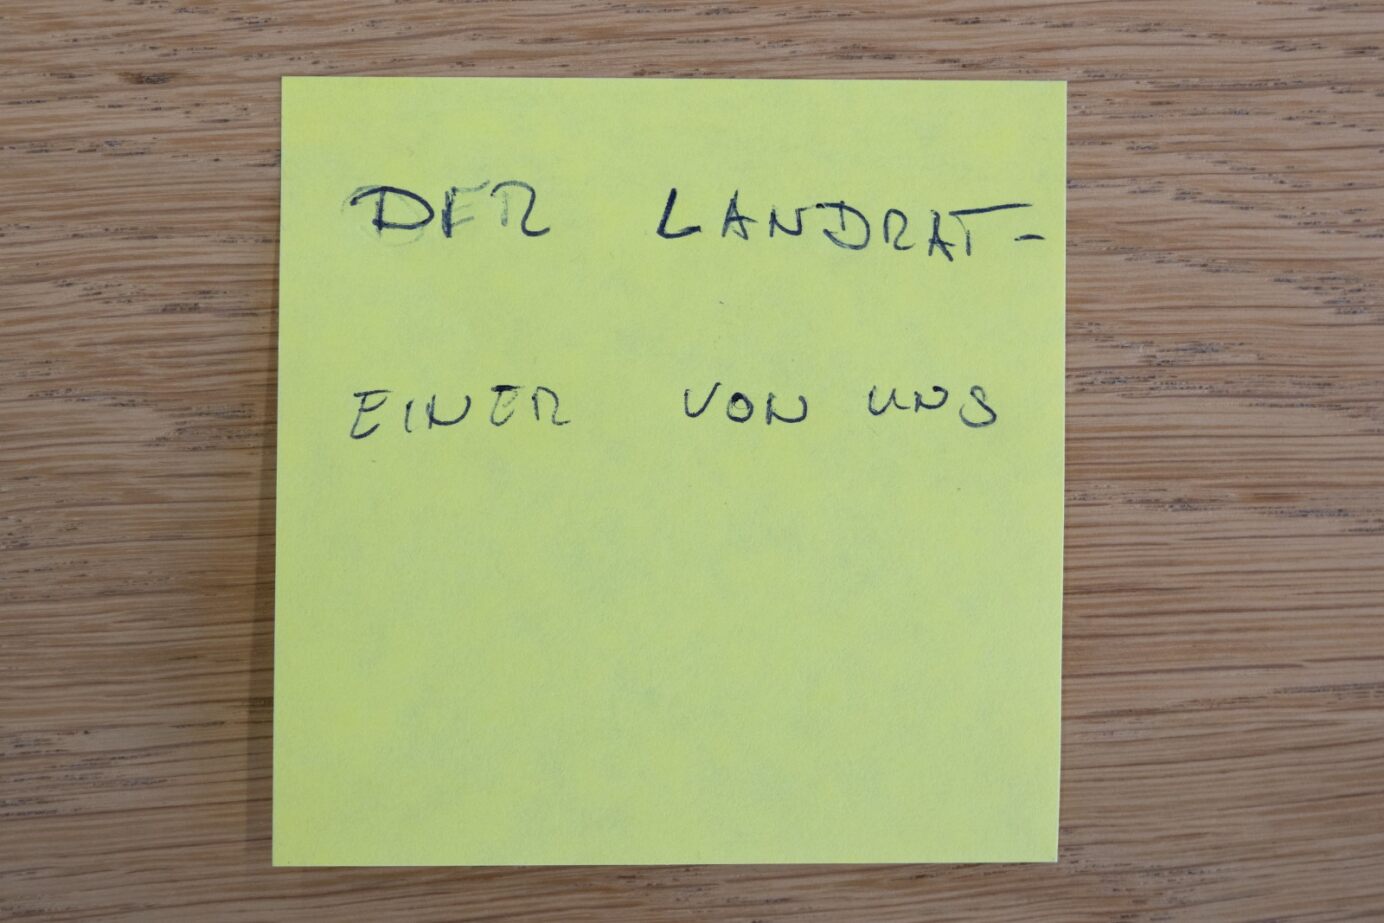 DER LANDRAT-
EINER VON UNS